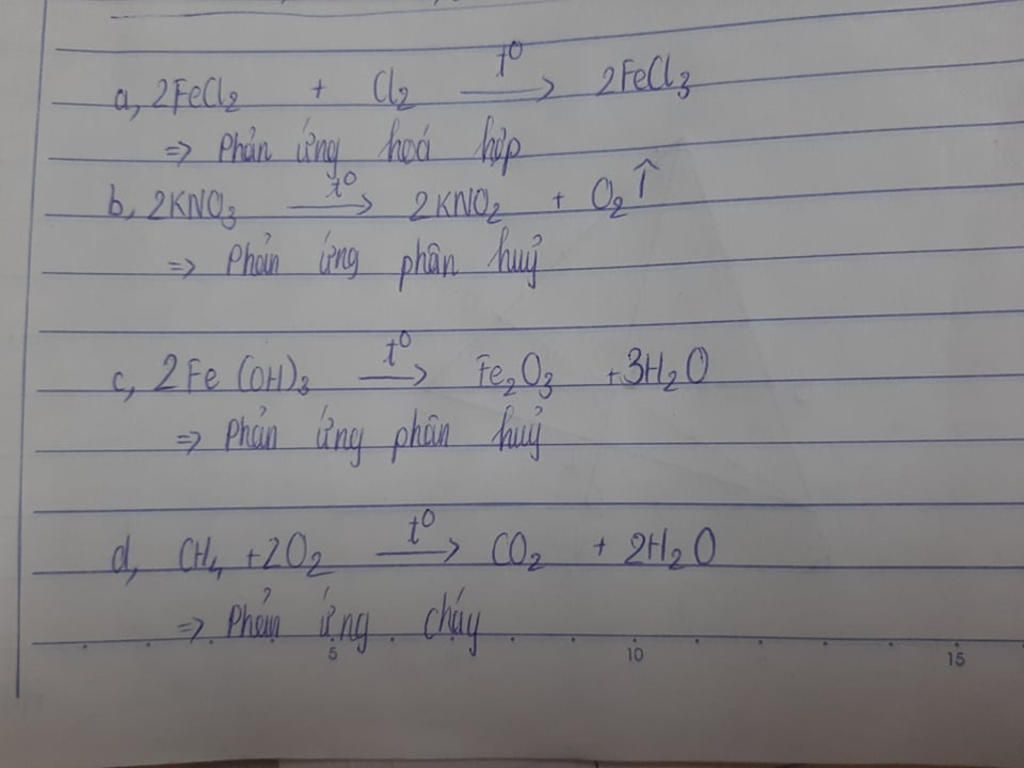 a, 2FeCl₂ + Cl₂ t⁰→ 2FeCl₃
=> Phản ứng hoá hợp
b, 2KNO₃ t⁰→ 2KNO₂ + O₂↑
=> Phản ứng phân huỷ
c, 2Fe(OH)₃ t⁰→ Fe₂O₃ + 3H₂O
=> Phản ứng phân huỷ
d, CH₄ + 2O₂ t⁰→ CO₂ + 2H₂O
=> Phản ứng cháy
5 10 15